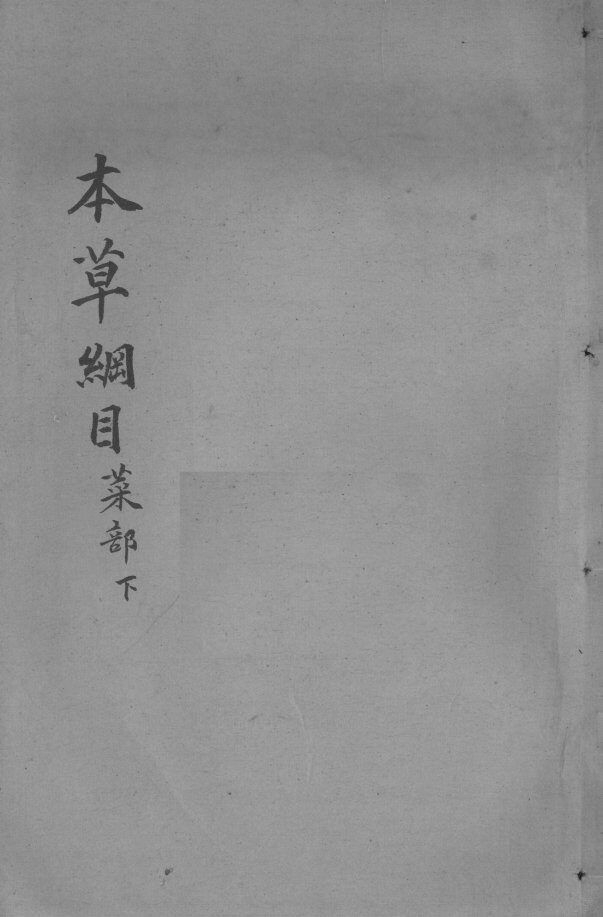 本草綱目菜部下